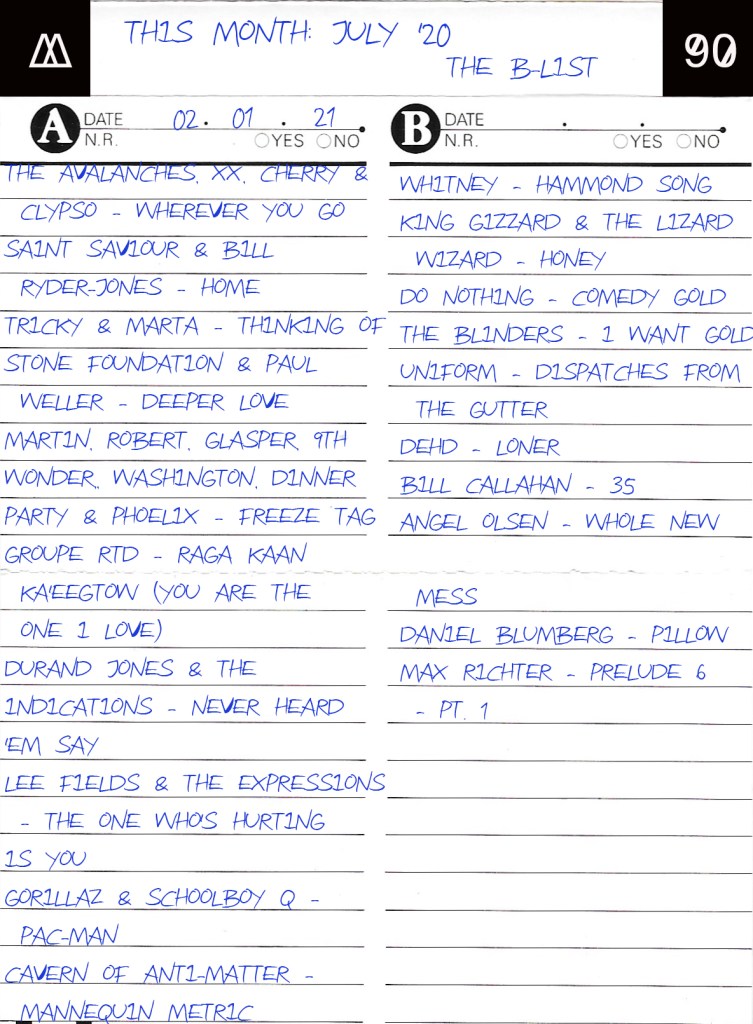 THIS MONTH: JULY '20
THE B-LIST
90
A DATE 02. 01. 21
N.R. YES NO
THE AVALANCHES, XX, CHERRY &
CLYPSO - WHEREVER YOU GO
SAINT SAVIOUR & BILL
RYDER-JONES - HOME
TRICKY & MARTA - THINKING OF
STONE FOUNDATION & PAUL
WELLER - DEEPER LOVE
MARTIN, ROBERT, GLASPER, 9TH
WONDER, WASHINGTON, DINNER
PARTY & PHOELIX - FREEZE TAG
GROUPE RTD - RAGA KAAN
KA'EEGTOW (YOU ARE THE
ONE I LOVE)
DURAND JONES & THE
INDICATIONS - NEVER HEARD
'EM SAY
LEE FIELDS & THE EXPRESSIONS
- THE ONE WHO'S HURTING
IS YOU
GORILLAZ & SCHOOLBOY Q -
PAC-MAN
CAVERN OF ANTI-MATTER -
MANNEQUIN METRIC
B DATE . .
N.R. YES NO
WHITNEY - HAMMOND SONG
KING GIZZARD & THE LIZARD
WIZARD - HONEY
DO NOTHING - COMEDY GOLD
THE BLINDERS - I WANT GOLD
UNIFORM - DISPATCHES FROM
THE GUTTER
DEHD - LONER
BILL CALLAHAN - 35
ANGEL OLSEN - WHOLE NEW
MESS
DANIEL BLUMBERG - PILLOW
MAX RICHTER - PRELUDE 6
- PT. 1